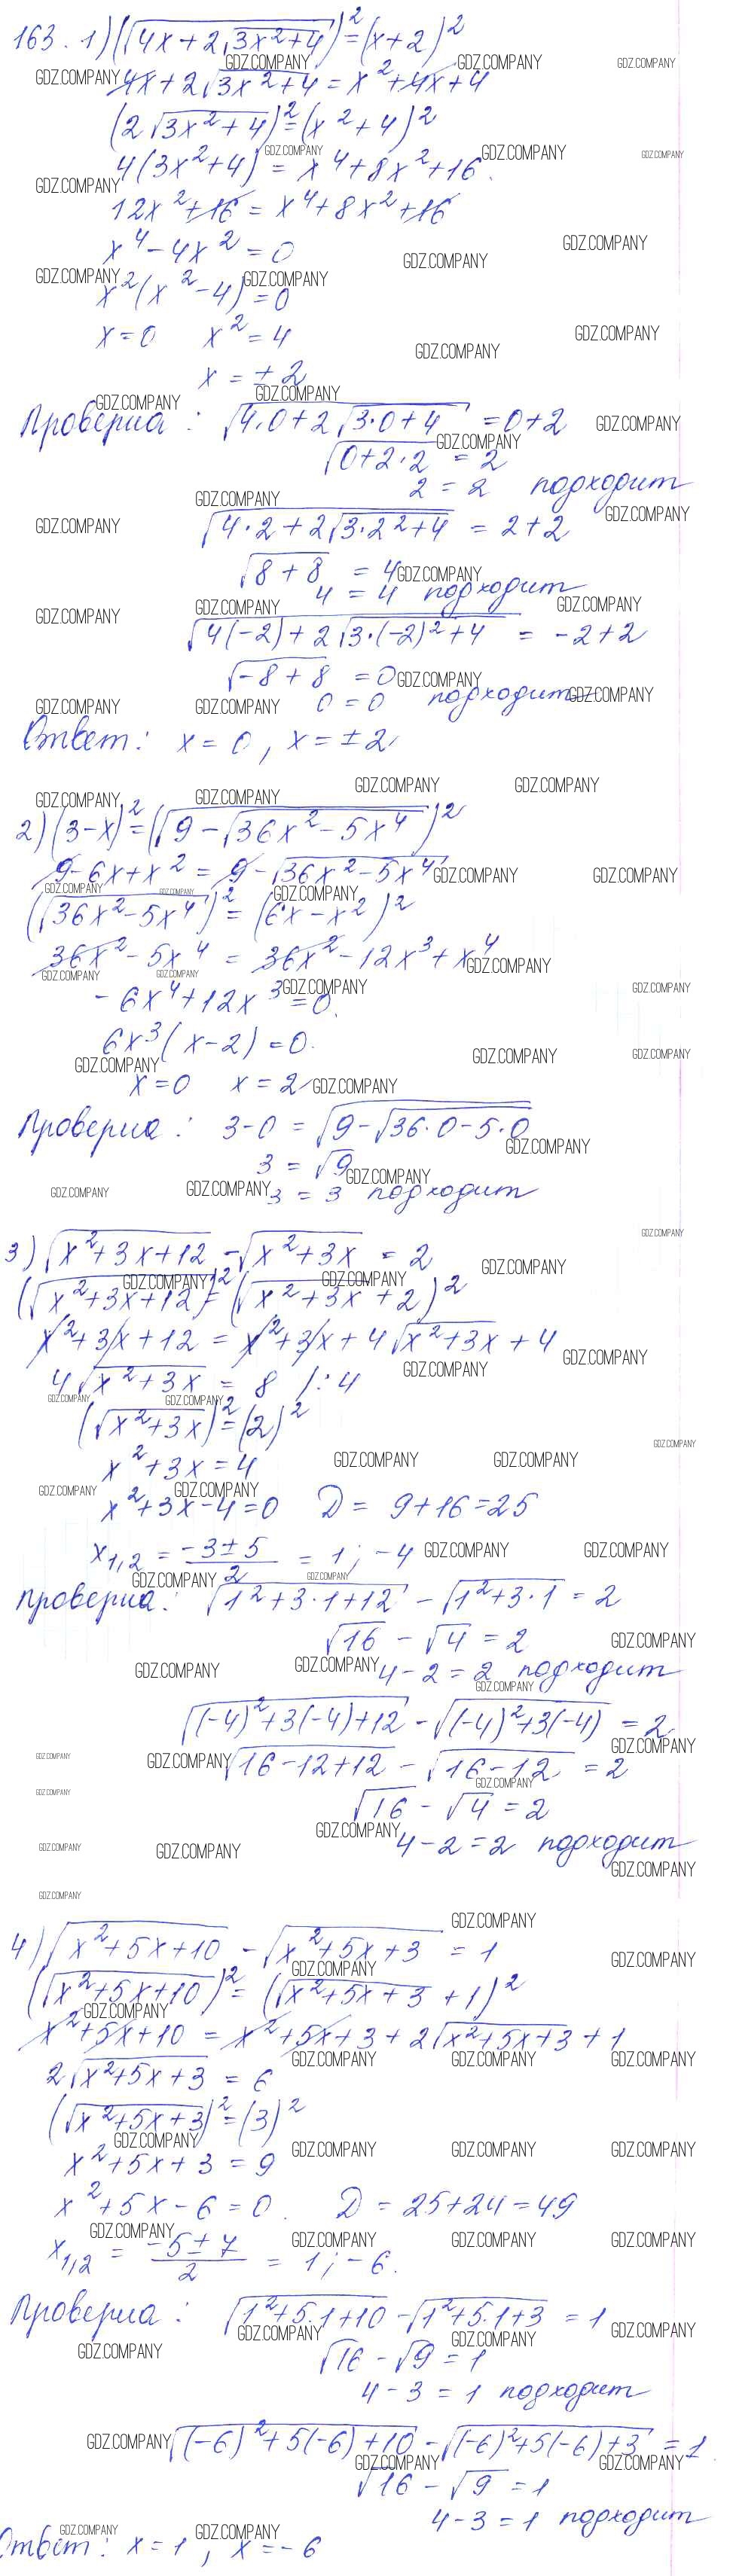 163. 1) (√(4x+2√(3x²+4)))² = (x+2)²
4x+2√(3x²+4) = x²+4x+4
(2√(3x²+4))² = (x²+4)²
4(3x²+4) = x⁴+8x²+16.
12x²+16 = x⁴+8x²+16
x⁴-4x² = 0
x²(x²-4) = 0
x=0 x²=4
x = ±2
Проверка: √(4·0+2√(3·0+4)) = 0+2
√(0+2·2) = 2
2 = 2 подходит
√(4·2+2√(3·2²+4)) = 2+2
√(8+8) = 4
4 = 4 подходит
√(4(-2)+2√(3·(-2)²+4)) = -2+2
√(-8+8) = 0
0 = 0 подходит
Ответ: x = 0, x = ±2
2) (3-x)² = (√(9-√(36x²-5x⁴)))²
9-6x+x² = 9-√(36x²-5x⁴)
(√(36x²-5x⁴))² = (6x-x²)²
36x²-5x⁴ = 36x²-12x³+x⁴
-6x⁴+12x³ = 0.
6x³(x-2) = 0.
x=0 x=2
Проверка: 3-0 = √(9-√(36·0-5·0))
3 = √9
3 = 3 подходит
3) √(x²+3x+12) - √(x²+3x) = 2
(√(x²+3x+12))² = (√(x²+3x)+2)²
x²+3x+12 = x²+3x+4√(x²+3x)+4
4√(x²+3x) = 8 /:4
(√(x²+3x))² = (2)²
x²+3x = 4
x²+3x-4=0 D = 9+16=25
x₁,₂ = (-3±5)/2 = 1; -4
Проверка: √(1²+3·1+12) - √(1²+3·1) = 2
√16 - √4 = 2
4-2 = 2 подходит
√((-4)²+3(-4)+12) - √((-4)²+3(-4)) = 2
√(16-12+12) - √(16-12) = 2
√16 - √4 = 2
4-2 = 2 подходит
4) √(x²+5x+10) - √(x²+5x+3) = 1
(√(x²+5x+10))² = (√(x²+5x+3)+1)²
x²+5x+10 = x²+5x+3+2√(x²+5x+3)+1
2√(x²+5x+3) = 6
(√(x²+5x+3))² = (3)²
x²+5x+3 = 9
x²+5x-6 = 0. D = 25+24=49
x₁,₂ = (-5±7)/2 = 1; -6.
Проверка: √(1²+5·1+10) - √(1²+5·1+3) = 1
√16 - √9 = 1
4-3 = 1 подходит
√((-6)²+5(-6)+10) - √((-6)²+5(-6)+3) = 1
√16 - √9 = 1
4-3 = 1 подходит
Ответ: x=1, x=-6
GDZ.COMPANY